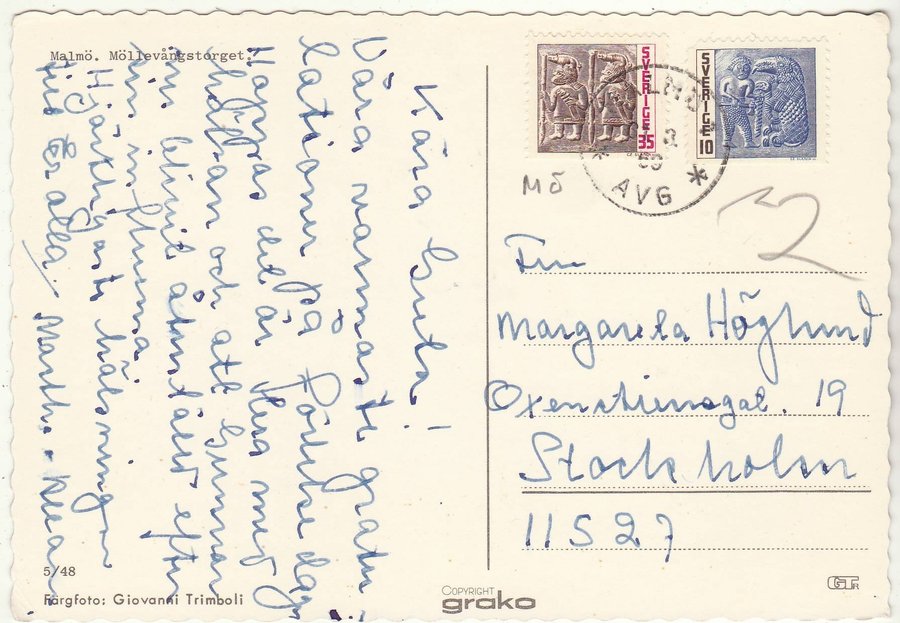 Malmö. Möllevångstorget.
Kära Greta!
Våra varmaste gratu-
lationer på födelsedagen
Hoppas det är bra med
hälsan och att Gunnar
blivit återställd efter
sin
Hjärtligaste hälsningar
till Er alla/
5/48
Färgfoto: Giovanni Trimboli
COPYRIGHT
grako
SVERIGE 35
SVERIGE 10
AVG
Mö
Fru
Margareta Höglund
Oxenstiernsgat. 19
Stockholm
11527